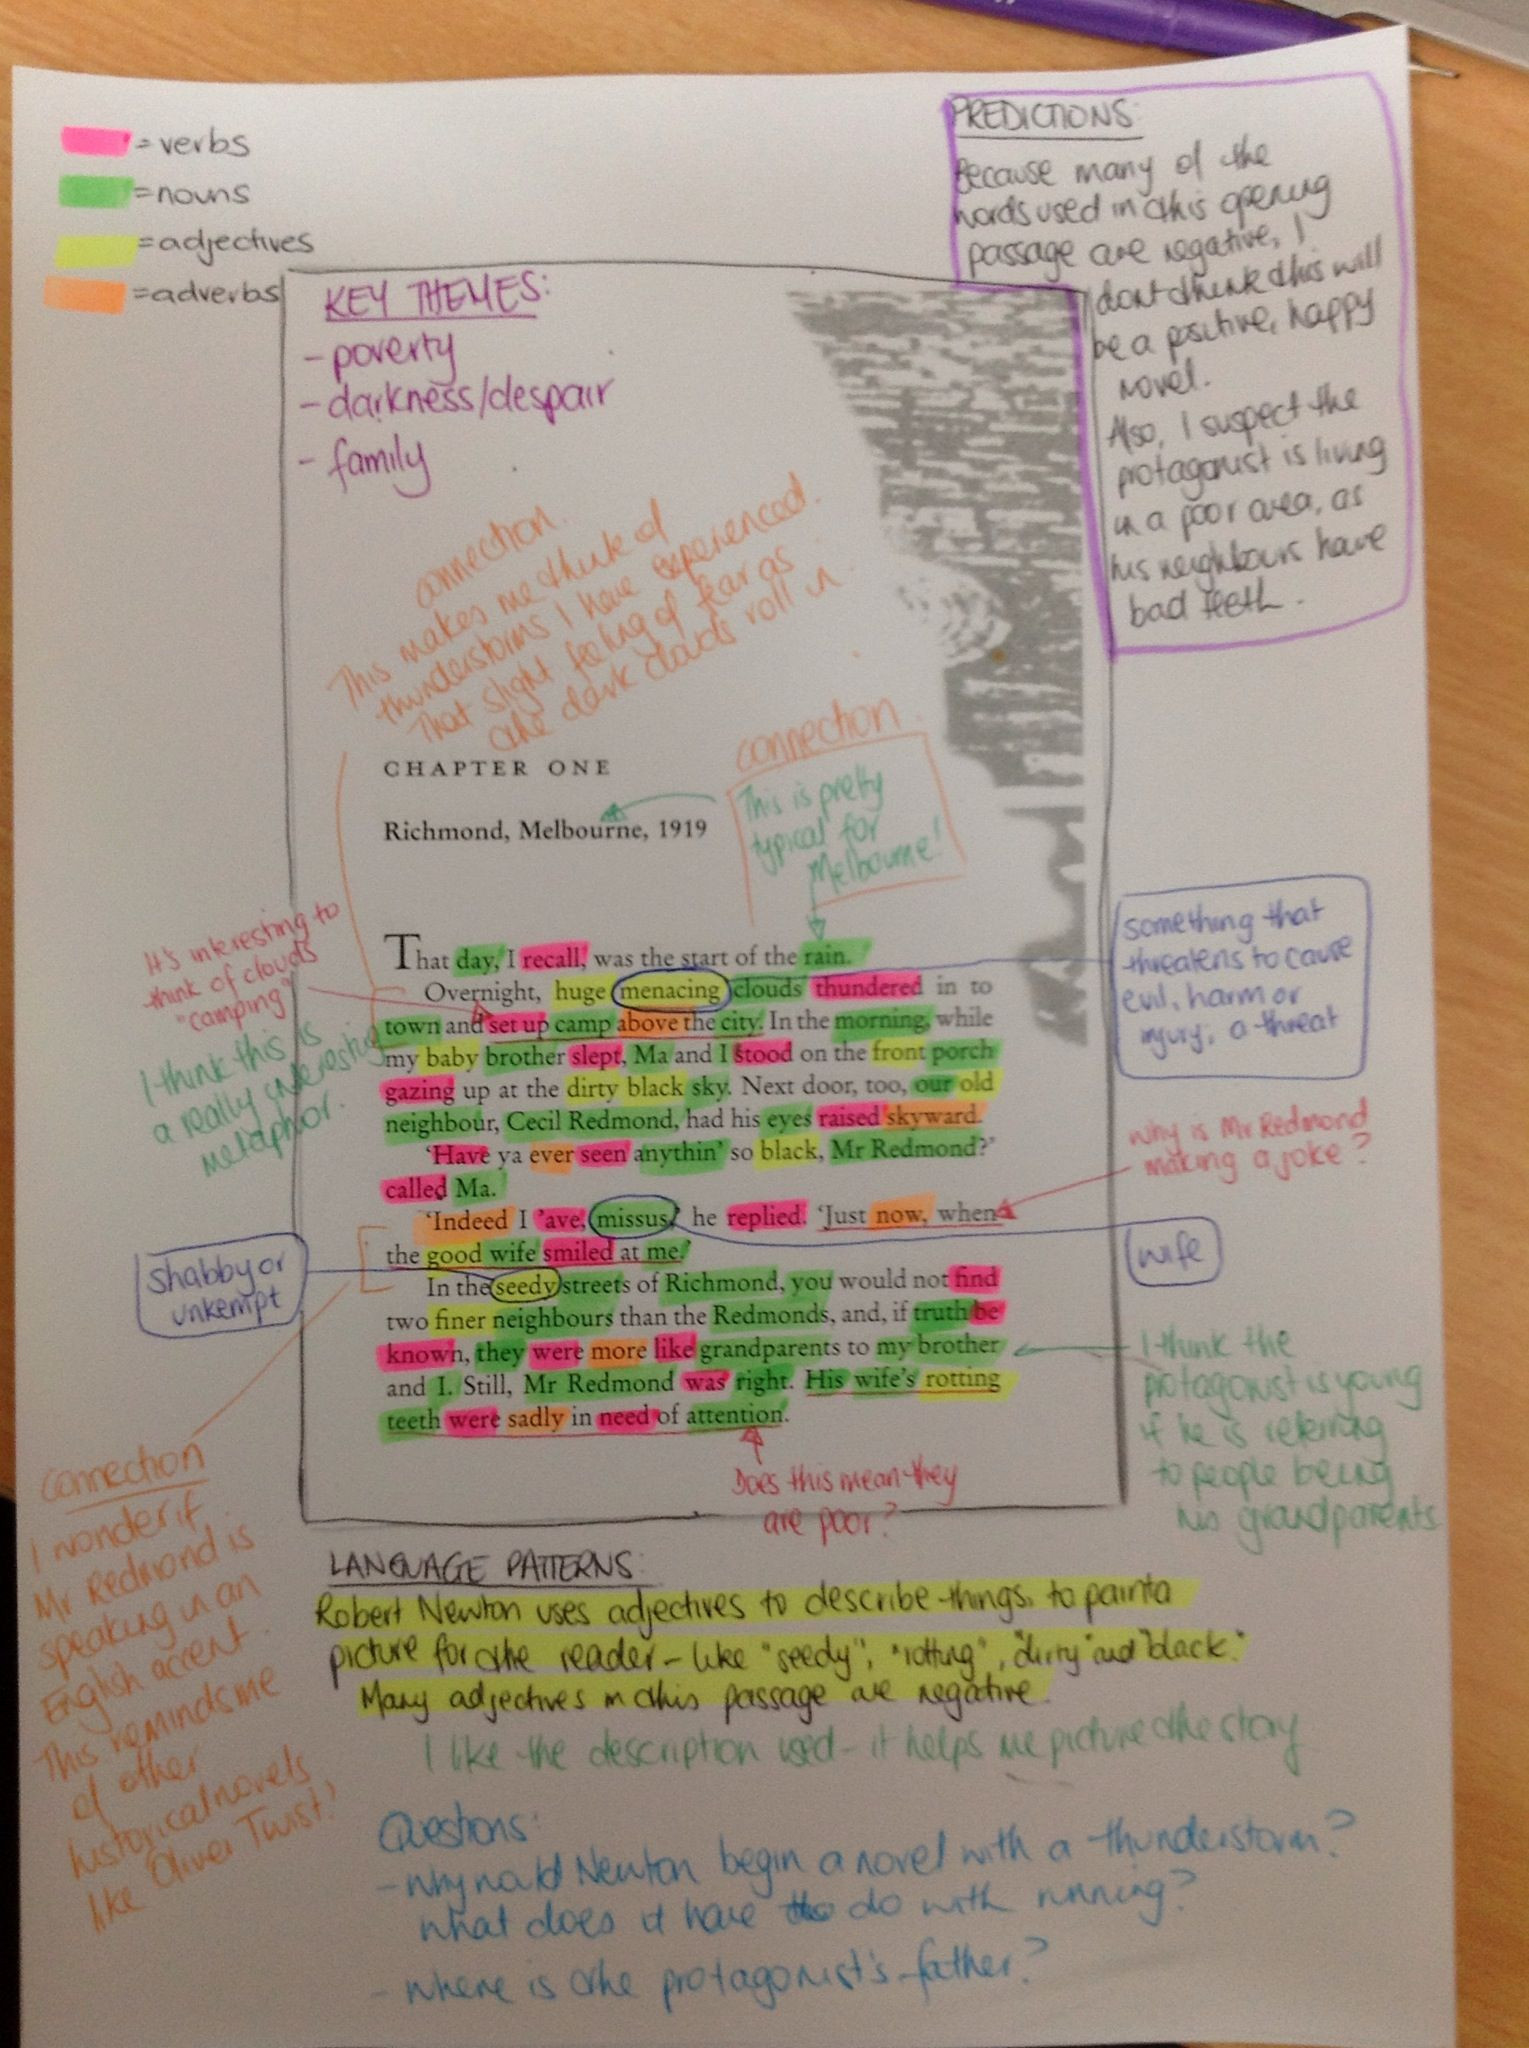 = verbs
= nouns
= adjectives
= adverbs
PREDICTIONS:
Because many of the
words used in this opening
passage are negative, I
dont think this will
be a positive, happy
novel.
Also, I suspect the
protagonist is living
in a poor area, as
his neighbours have
bad teeth.
KEY THEMES:
- poverty
- darkness/despair
- family
connection.
This makes me think of
thunderstorms I have experienced.
That slight feeling of fear as
the dark clouds roll in.
CHAPTER ONE
Richmond, Melbourne, 1919
connection.
This is pretty
typical for
Melbourne!
It's interesting to
think of clouds
"camping"
I think this is
a really interesting
metaphor.
something that
threatens to cause
evil, harm or
injury, a threat
That day, I recall, was the start of the rain.
Overnight, huge menacing clouds thundered in to
town and set up camp above the city. In the morning, while
my baby brother slept, Ma and I stood on the front porch
gazing up at the dirty black sky. Next door, too, our old
neighbour, Cecil Redmond, had his eyes raised skyward.
'Have ya ever seen anythin' so black, Mr Redmond?'
called Ma.
'Indeed I 'ave, missus,' he replied. 'Just now, when
the good wife smiled at me.'
In the seedy streets of Richmond, you would not find
two finer neighbours than the Redmonds, and, if truth be
known, they were more like grandparents to my brother
and I. Still, Mr Redmond was right. His wife's rotting
teeth were sadly in need of attention.
why is Mr Redmond
making a joke?
wife
shabby or
unkempt
I think the
protagonist is young
if he is referring
to people being
his grandparents
Does this mean they
are poor?
connection
I wonder if
Mr Redmond is
speaking in an
English accent.
This reminds me
of other
historical novels
like Oliver Twist!
LANGUAGE PATTERNS:
Robert Newton uses adjectives to describe things, to paint a
picture for the reader - like "seedy", "rotting", "dirty" and "black."
Many adjectives in this passage are negative.
I like the description used - it helps me picture the story
Questions:
- why would Newton begin a novel with a thunderstorm?
what does it have to do with running?
- where is the protagonist's father?